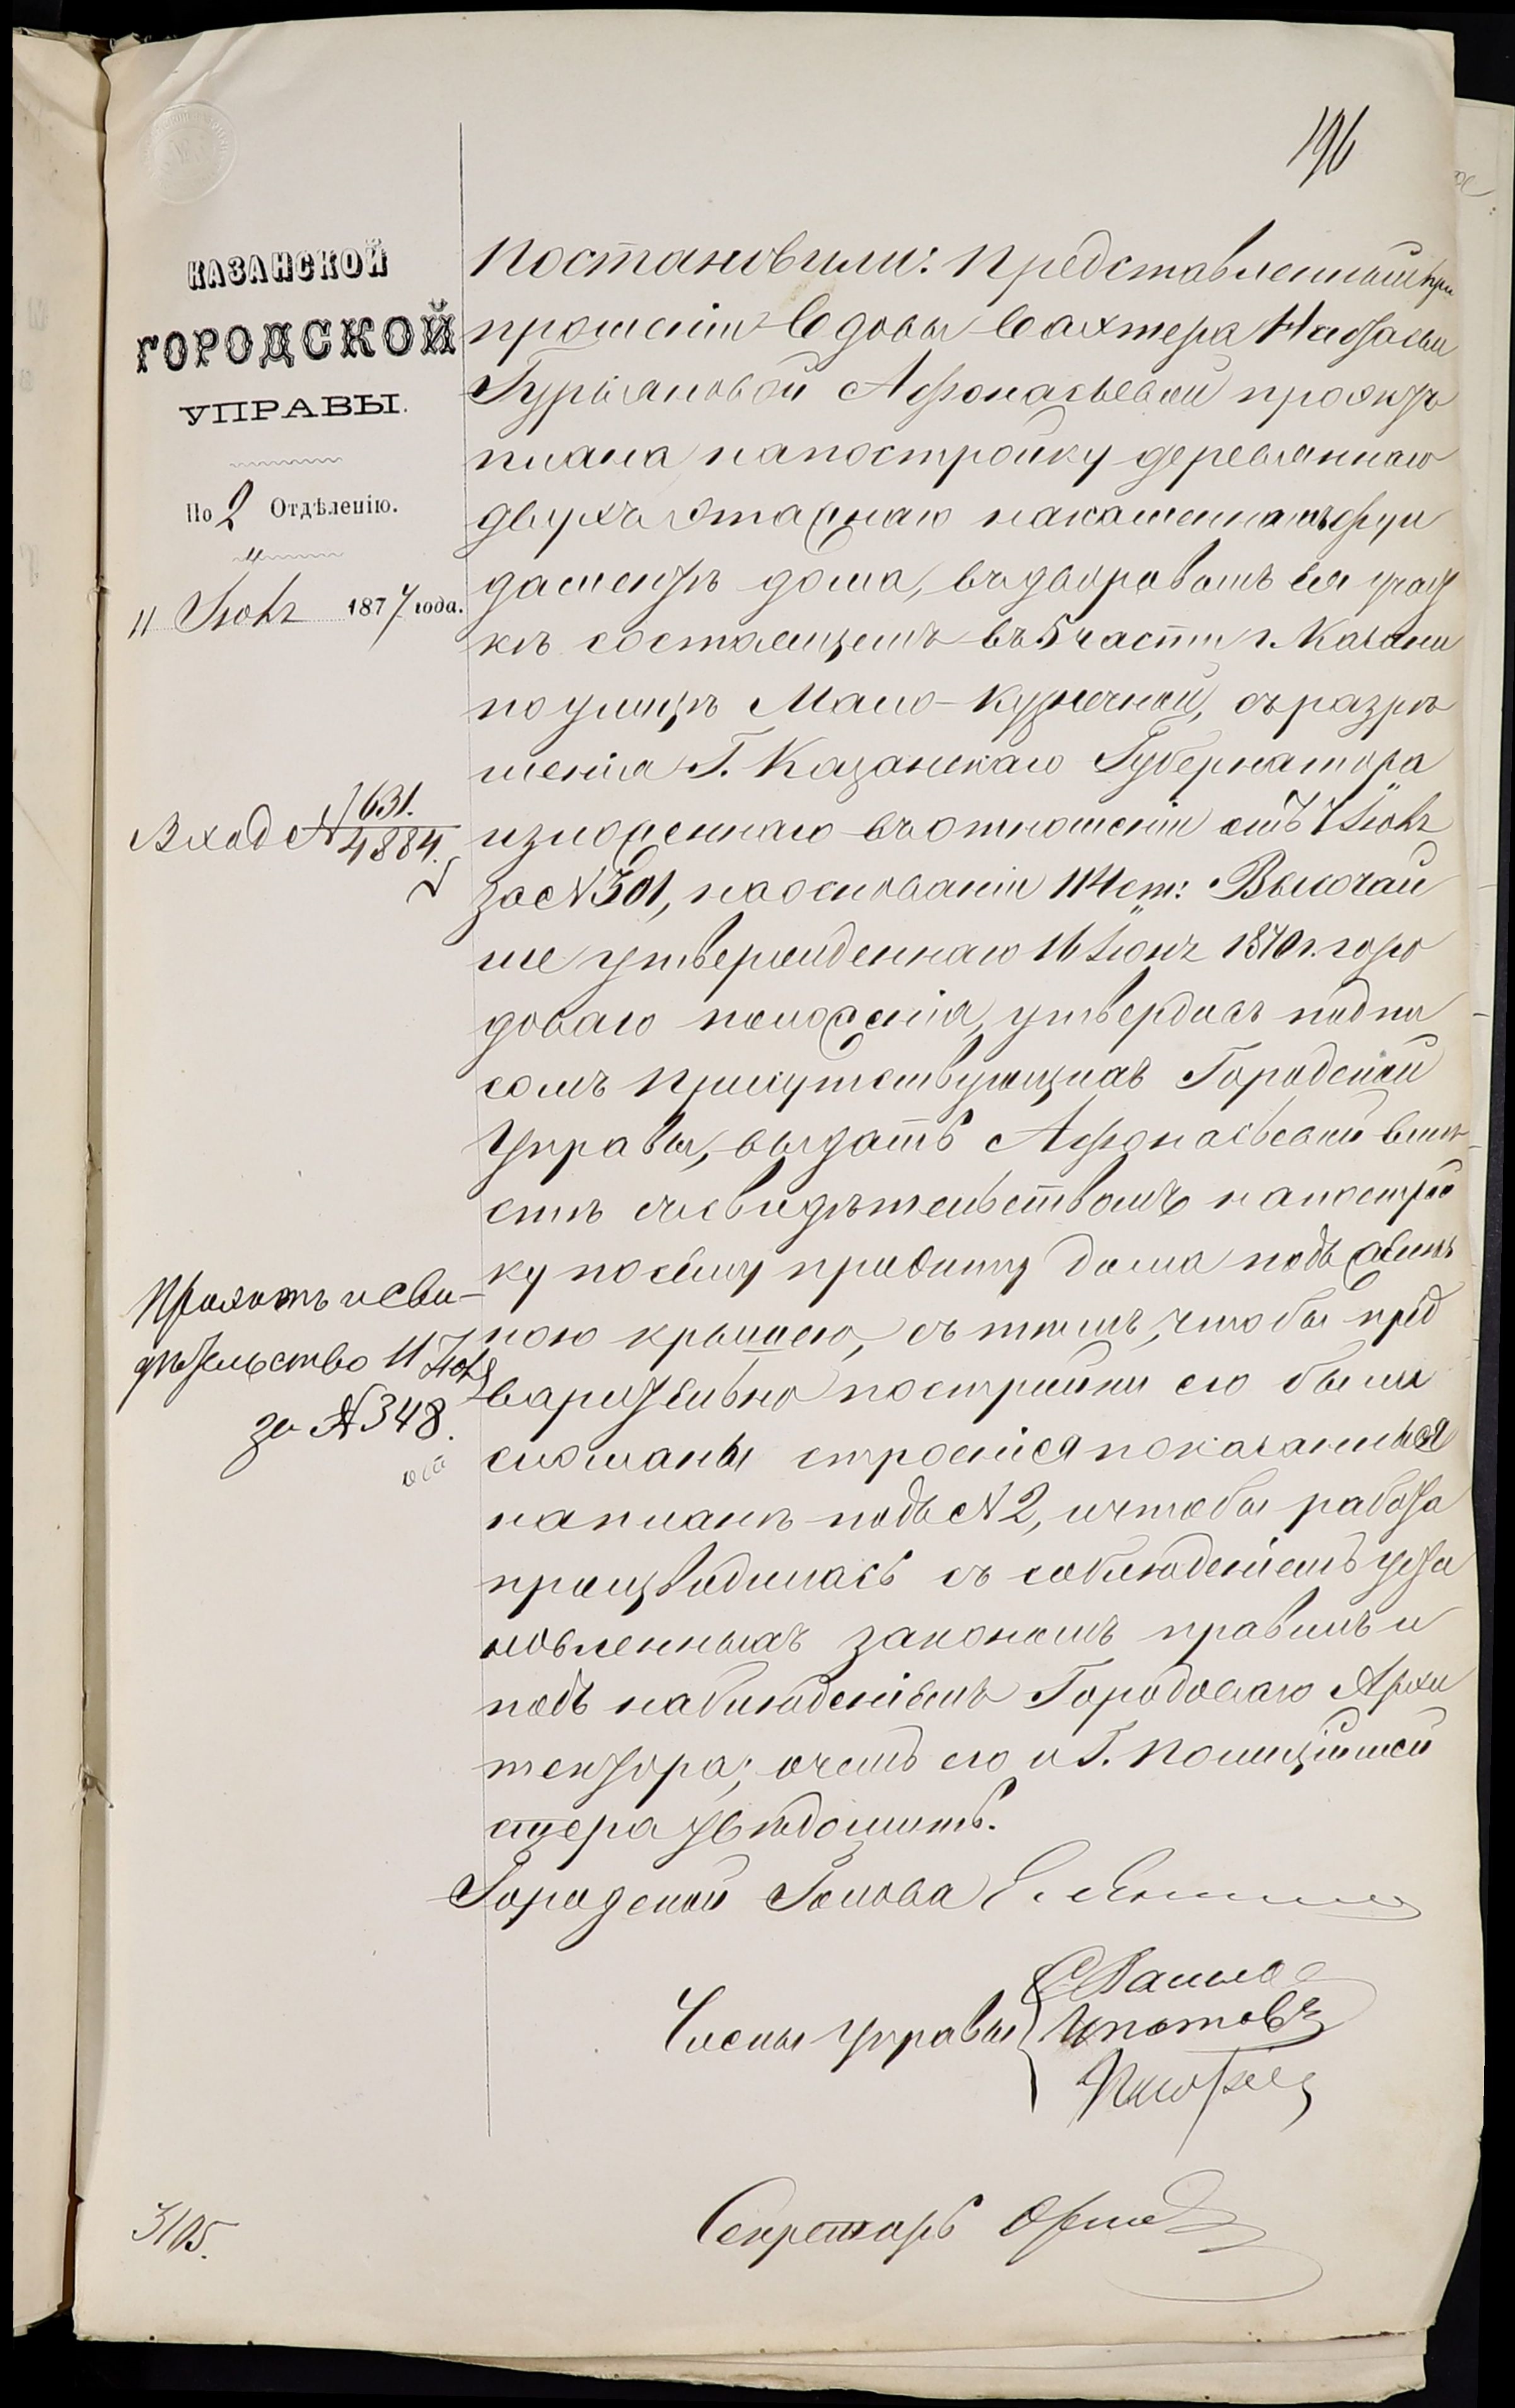 196
КАЗАНСКОЙ
ГОРОДСКОЙ
УПРАВЫ.
По 2 Отдѣленію.
11 Іюня 1877 года.
Вход № 1631.
4884.
Проэктъ и сви-
дѣтельство 11 Іюня
за № 348.
Постановили: Представленный при
прошеніи вдовы вахтера Натальи
Гурьяновой Афонасьевой проэктъ
плана на постройку деревяннаго
двухъ этажнаго на каменномъ фун
даментѣ дома, въ дворовомъ ея учас
кѣ состоящемъ въ 5 части г. Казани
по улицѣ Мало-Кузнечной, съ разрѣ
шенія Г. Казанскаго Губернатора
изложеннаго въ отношеніи отъ 7 Іюня
за № 301, на основаніи 114 ст: Высочай
ше утвержденнаго 16 Іюня 1870 г. горо
доваго положенія, утвердивъ подпи
сомъ присутствующихъ Городской
Управы, выдать Афонасьевой вмѣ
стѣ съ свидѣтельствомъ на построй
ку по сему проэкту дома подъ
ною крышею, съ тѣмъ, чтобы пред
варительно постройки его были
сломаны строенія показанныя
на планѣ подъ № 2, и чтобы работа
производилась съ соблюденіемъ уста
новленныхъ закономъ правилъ и
подъ наблюденіемъ Городоваго Архи
тектора; о чемъ его и Г. Полиціймей
стера увѣдомить.
Городской Голова
Члены Управы
Ипатовъ
Секретарь
3105.